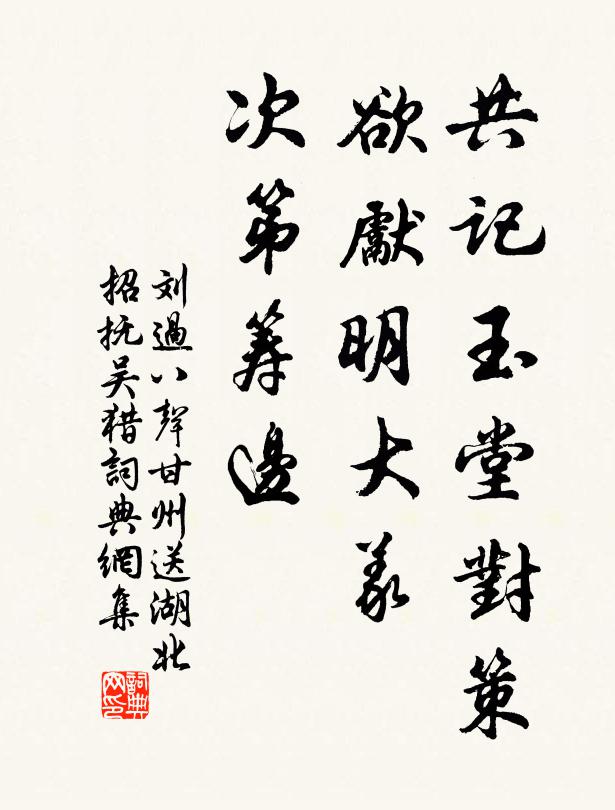 共記玉堂對策
欲獻明大義
次第籌邊
刘過八聲甘州送湖北
招抚吴猎詞典網集
詞典网印